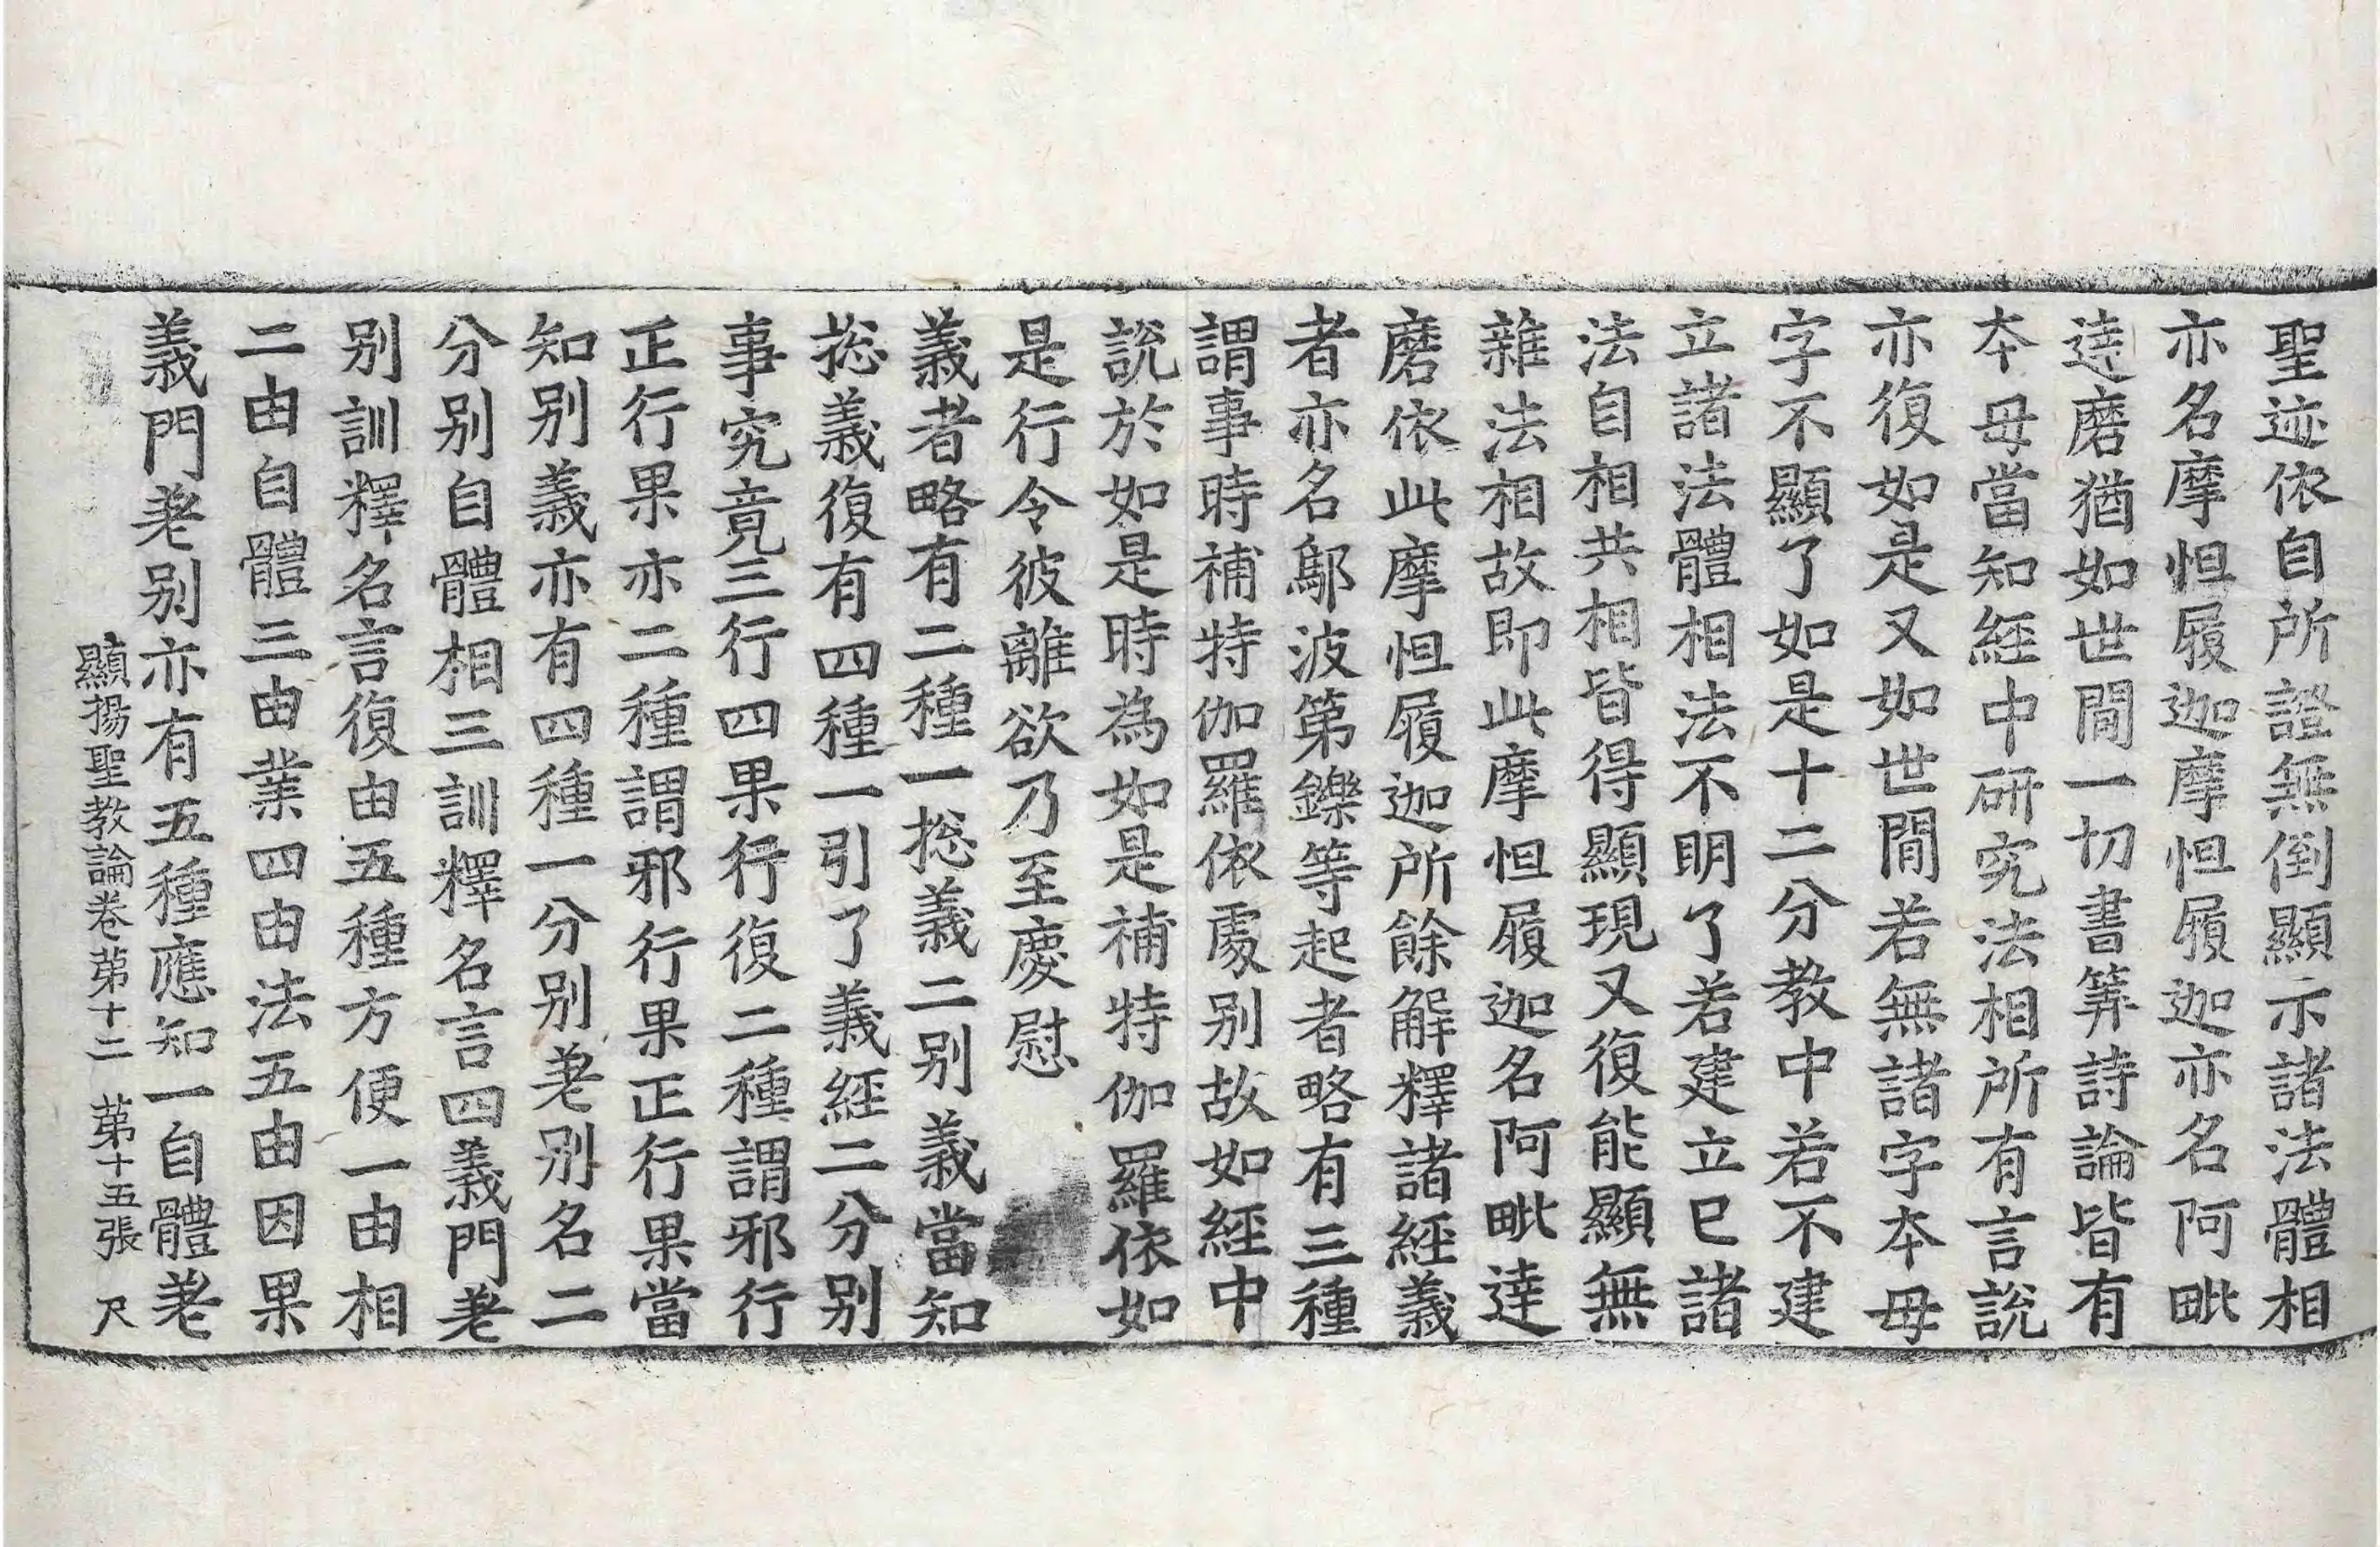 聖迹依自所證無倒顯示諸法體相
亦名摩怛履迦摩怛履迦亦名阿毗
達磨猶如世間一切書筭詩論皆有
本母當知經中研究法相所有言說
亦復如是又如世間若無諸字本母
字不顯了如是十二分教中若不建
立諸法體相法不明了若建立已諸
法自相共相皆得顯現又復能顯無
雜法相故即此摩怛履迦名阿毗達
磨依此摩怛履迦所餘解釋諸經義
者亦名鄔波第鑠等起者略有三種
謂事時補特伽羅依處別故如經中
說於如是時為如是補特伽羅依如
是行令彼離欲乃至慶慰
義者略有二種一捴義二別義當知
捴義復有四種一引了義經二分別
事究竟三行四果行復二種謂邪行
正行果亦二種謂邪行果正行果當
知別義亦有四種一分別差別名二
分別自體相三訓釋名言四義門差
別訓釋名言復由五種方便一由相
二由自體三由業四由法五由因果
義門差別亦有五種應知一自體差
顯揚聖教論卷第十二 第十五張 尺